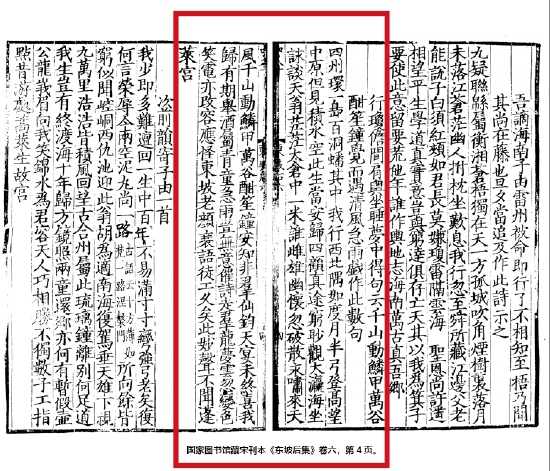 吾謫海南子由雷州被命即行了不相知至梧乃聞
其尚在藤也旦夕當追及作此詩示之
九疑聯緜屬衡湘蒼梧獨在天一方孤城吹角煙樹裏落月
未落江蒼茫幽人拊枕坐歎息我行忽至舜所藏江邊父老
能説子白須紅頰如君長莫嫌瓊雷隔雲海 聖恩尚許遥
相望平生學道真實意豈與窮達俱存亡天其以我為箕子
要使此意留要荒他年誰作輿地志海南萬古真吾鄉
行瓊儋間肩輿坐睡夢中得句云千山動鱗甲萬谷
酣笙鐘覺而遇清風急雨戲作此數句
四州環一島百洞蟠其中我行西北隅如度月半弓登高望
中原但見積水空此生當安歸四顧真途窮眇觀大瀛海坐
詠談天翁茫茫太倉中一米誰雌雄幽懷忽破散永嘯來天
風千山動鱗甲萬谷酣笙鐘安知非羣仙鈞天宴未終喜我
歸有期舉酒屬青童急雨豈無意催詩走羣龍夢雲忽變色
笑電亦改容應怪東坡老顔衰語徒工久矣此妙聲不聞蓬
萊宮
次前韻寄子由一首
我少即多難邅回一生中百年不易滿寸寸彎強弓老矣復
何言榮辱今兩空泥丸尚一路古語云十方薄伽梵一路涅槃門所向餘皆
窮似聞崆峒西仇池迎此翁胡為適南海復駕垂天雄下視
九萬里浩浩皆積風回望古合州屬此琉璃鍾離別何足道
我生豈有終渡海十年歸方鏡照兩童還鄉亦何有暫假壺
公龍峨眉向我笑錦水為君容天人巧相勝不獨數子工指
點昔游處蒿萊生故宮
国家图书馆藏宋刊本《东坡后集》卷六，第 4 页。